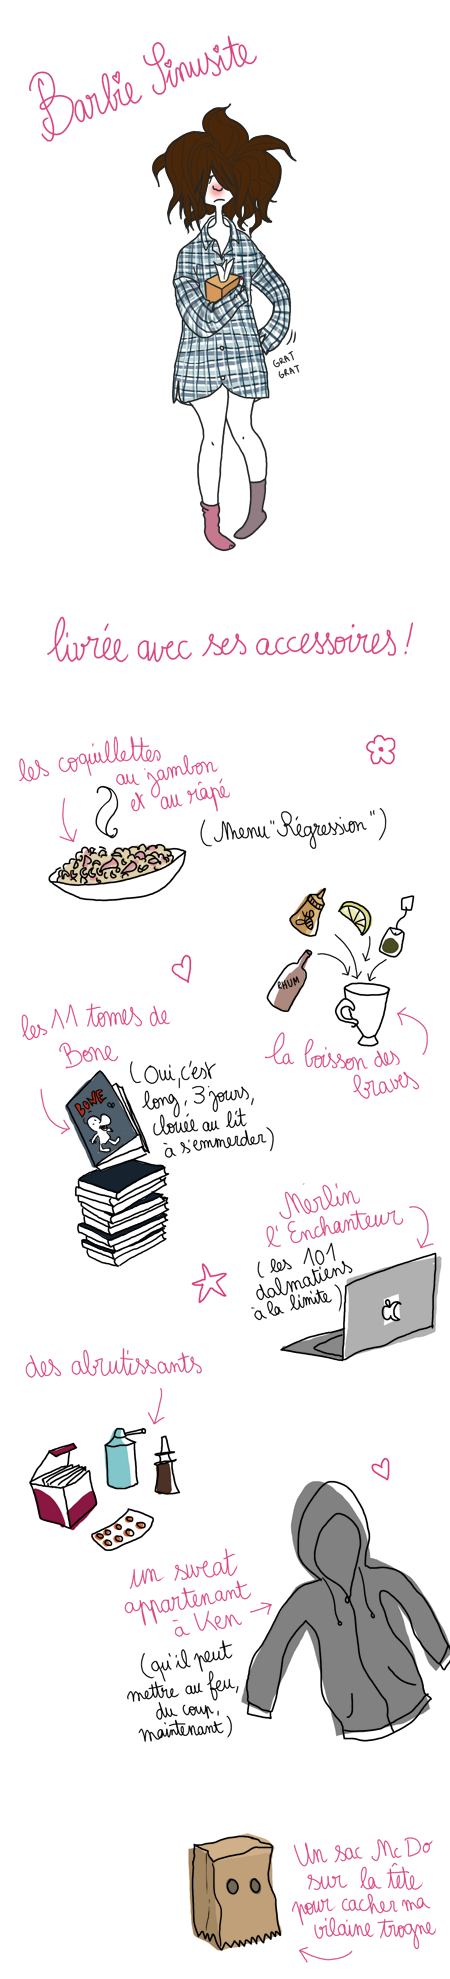 Barbie Sinusite
GRAT
GRAT
livrée avec ses accessoires !
les coquillettes
au jambon
et au râpé
(Menu "Régression")
RHUM
la boisson des
braves
les 11 tomes de
Bone
BONE
(Oui, c'est
long, 3 jours,
clouée au lit
à s'emmerder)
Merlin
l'Enchanteur
(les 101
dalmatiens
à la limite)
des abrutissants
un sweat
appartenant
à Ken
(qu'il peut
mettre au feu,
du coup,
maintenant)
Un sac Mc Do
sur la tête
pour cacher ma
vilaine trogne